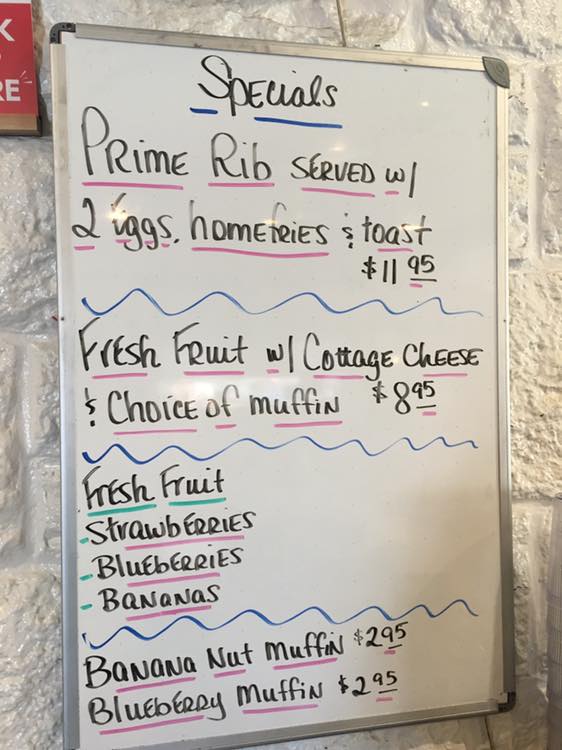 K
RE
Specials
Prime Rib served w/
2 Eggs, homefries & toast
$11 95
Fresh Fruit w/ Cottage Cheese
& Choice of muffin $8 95
Fresh Fruit
- Strawberries
- Blueberries
- Bananas
Banana Nut muffin $2 95
Blueberry muffin $2 95